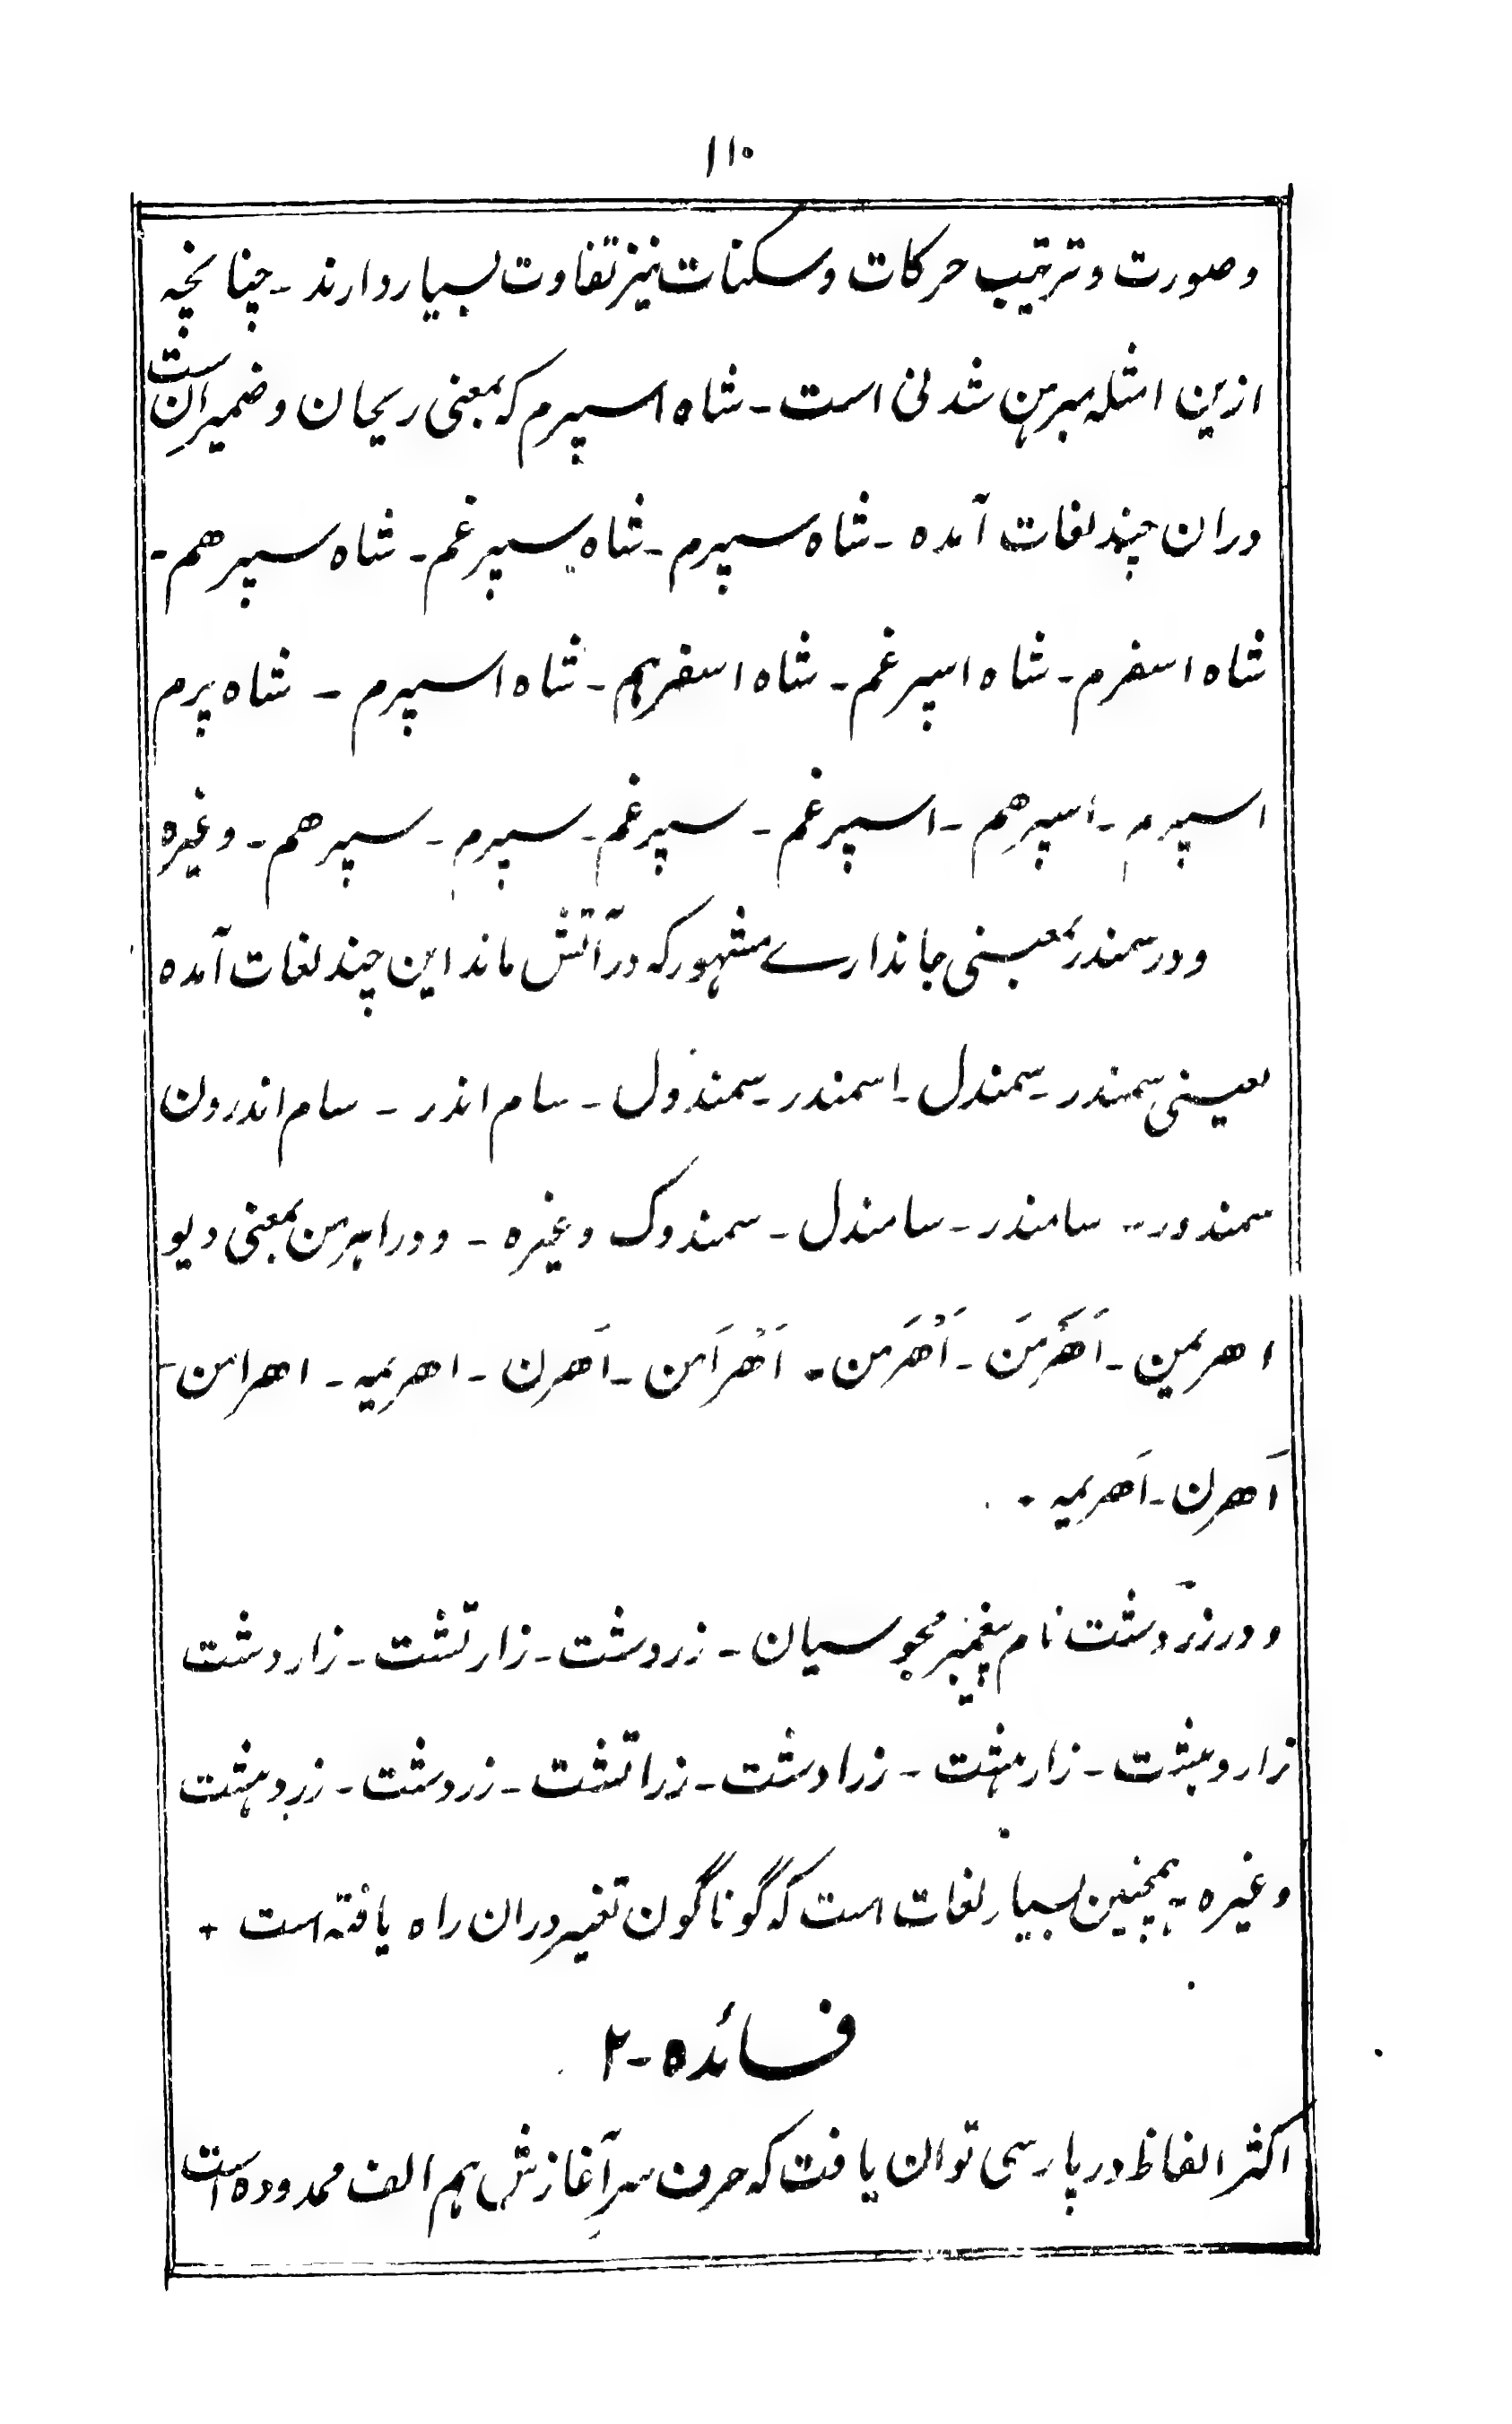 ۱۱۰
وصورت وترتیب حرکات وسکنات نیز تفاوت بسیار دارند - چنانچه
ازین امثله مبرہن شدنی است - شاه اسپرم که بمعنی ریحان وضمیران است
دران چند لغات آمده - شاه سپرم - شاه سپرغم - شاه سپرهم -
شاه اسفرم - شاه اسپرغم - شاه اسفرہم - شاه اسپرم - شاه پرم
اسپرم - اسپرهم - اسپرغم - سپرغم - سپرم - سپرهم - وغیره
ودر سمندر بمعنی جاندارے مشہور که در آتش ماند این چند لغات آمده
یعنی سمندر - سمندل - اسمندر - سمندول - سام اندر - سام اندرون
سمندور - سامندر - سامندل - سمندوک وغیره - ودر اہرمن بمعنی دیو
اهریمن - اَهَرِمَن - اَهْرَمن - اَهْرَامن - اَهرن - اهریمه - اهرامن -
اَهرِن - اَهریمه -
ودر زردشت نام پیغمبر مجوسیان - زردشت - زارتشت - زاردشت
زاردہشت - زارہشت - زرادشت - زراتشت - زردشت - زردہشت
وغیره - ہمچنین بسیار لغات است که گوناگون تغیر دران راه یافته است +
فائده - ۲
اکثر الفاظ در پارسی توان یافت که حرف سرِآغازش ہم الف ممدوده است